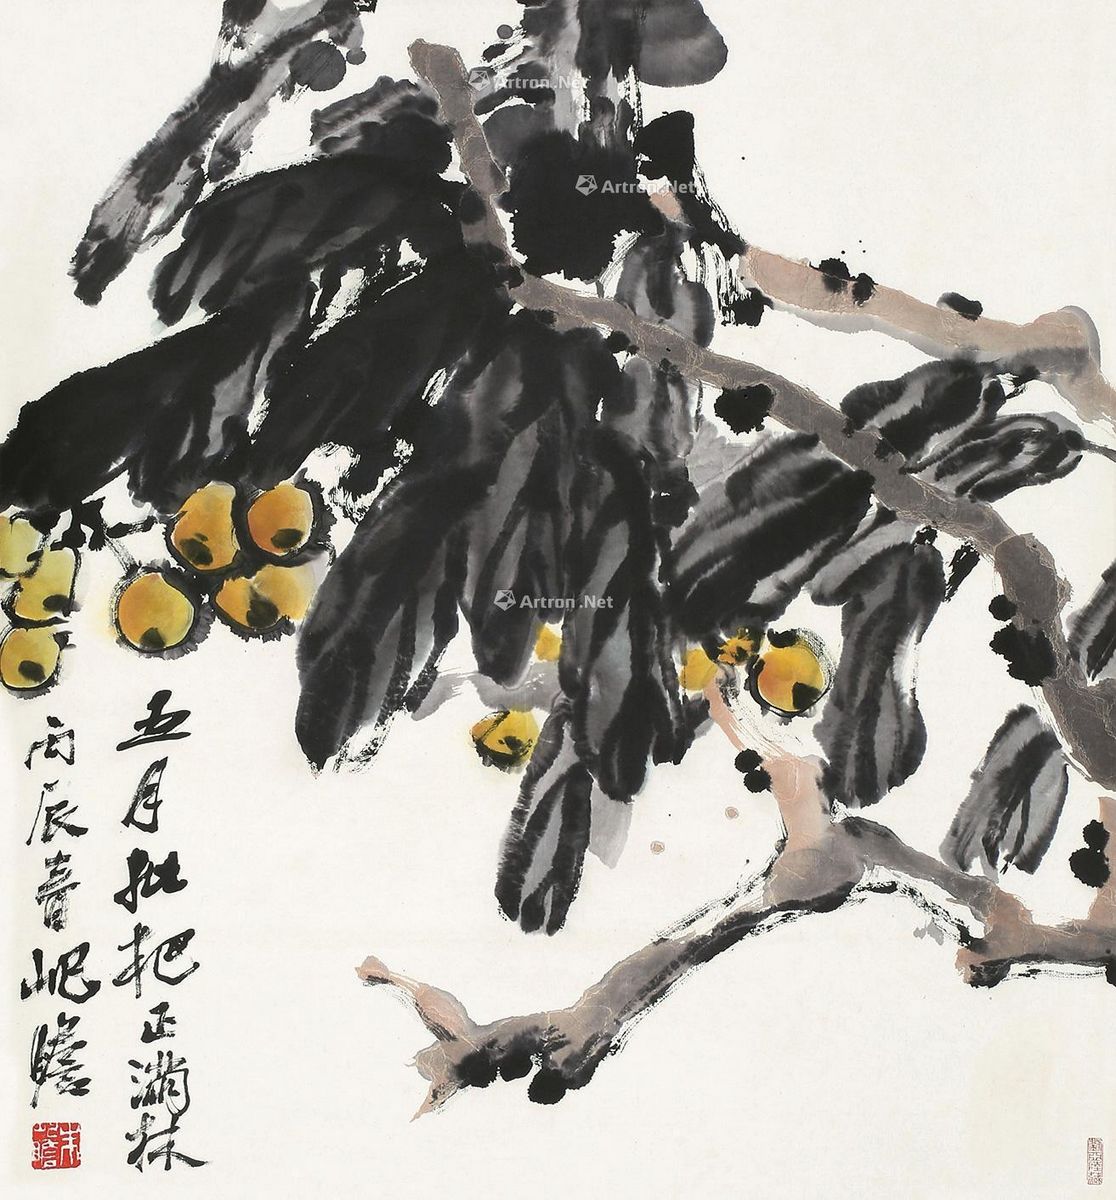 五月枇杷正满林
丙辰春岷瞻
Artron.Net
Artron.Net
Artron.Net